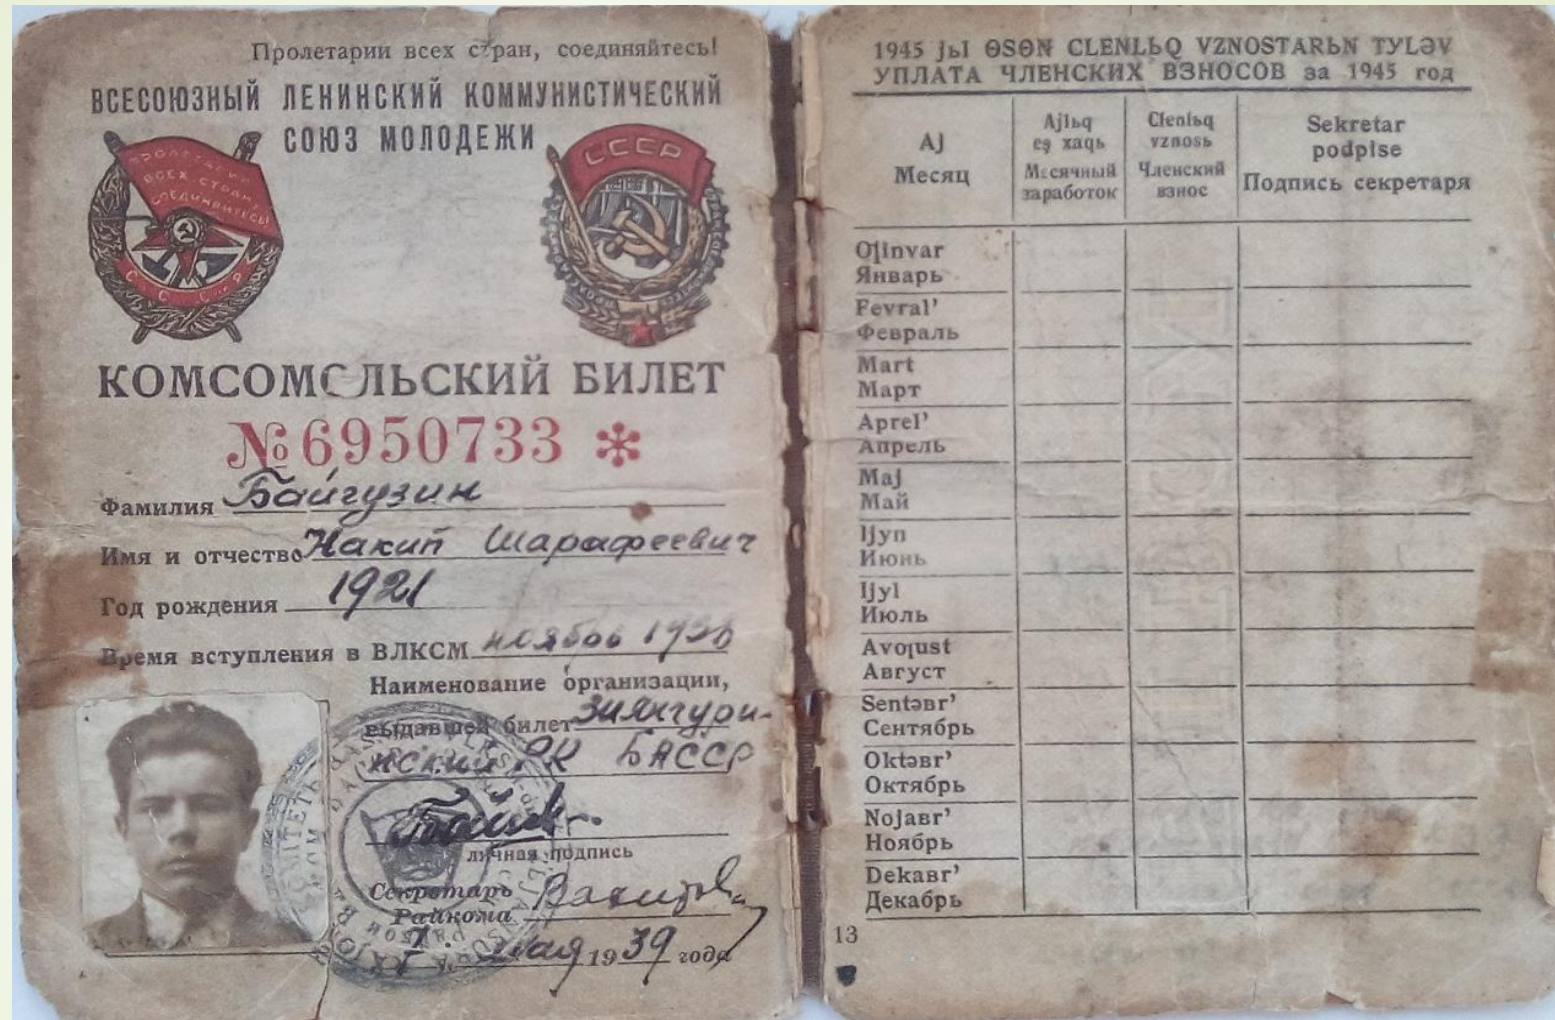 Пролетарии всех стран, соединяйтесь!
ВСЕСОЮЗНЫЙ ЛЕНИНСКИЙ КОММУНИСТИЧЕСКИЙ
СОЮЗ МОЛОДЕЖИ
ПРОЛЕТАРИИ
ВСЕХ СТРАН
СОЕДИНЯЙТЕСЬ!
С С С Р
СССР
КОМСОМОЛЬСКИЙ БИЛЕТ
№6950733 *
Фамилия Байгузин
Имя и отчество Накип Шарафеевич
Год рождения 1921
Время вступления в ВЛКСМ
Наименование организации,
выдавшей билет Зиянчури-
нский РК БАССР
личная подпись
Секретарь
Райкома
мая 1939 года
1945 jьl ɵsɵn clenlьq vznostarьn tyləv
УПЛАТА ЧЛЕНСКИХ ВЗНОСОВ за 1945 год
Aj
Месяц
Ajlьq eş xaqь
Месячный заработок
Clenlьq vznosь
Членский взнос
Sekretar podpise
Подпись секретаря
Январь
Fevral'
Февраль
Mart
Март
Aprel'
Апрель
Maj
Май
Ijyn
Июнь
Ijyl
Июль
Август
Sentəbr'
Сентябрь
Oktəbr'
Октябрь
Nojabr'
Ноябрь
Dekabr'
Декабрь
13